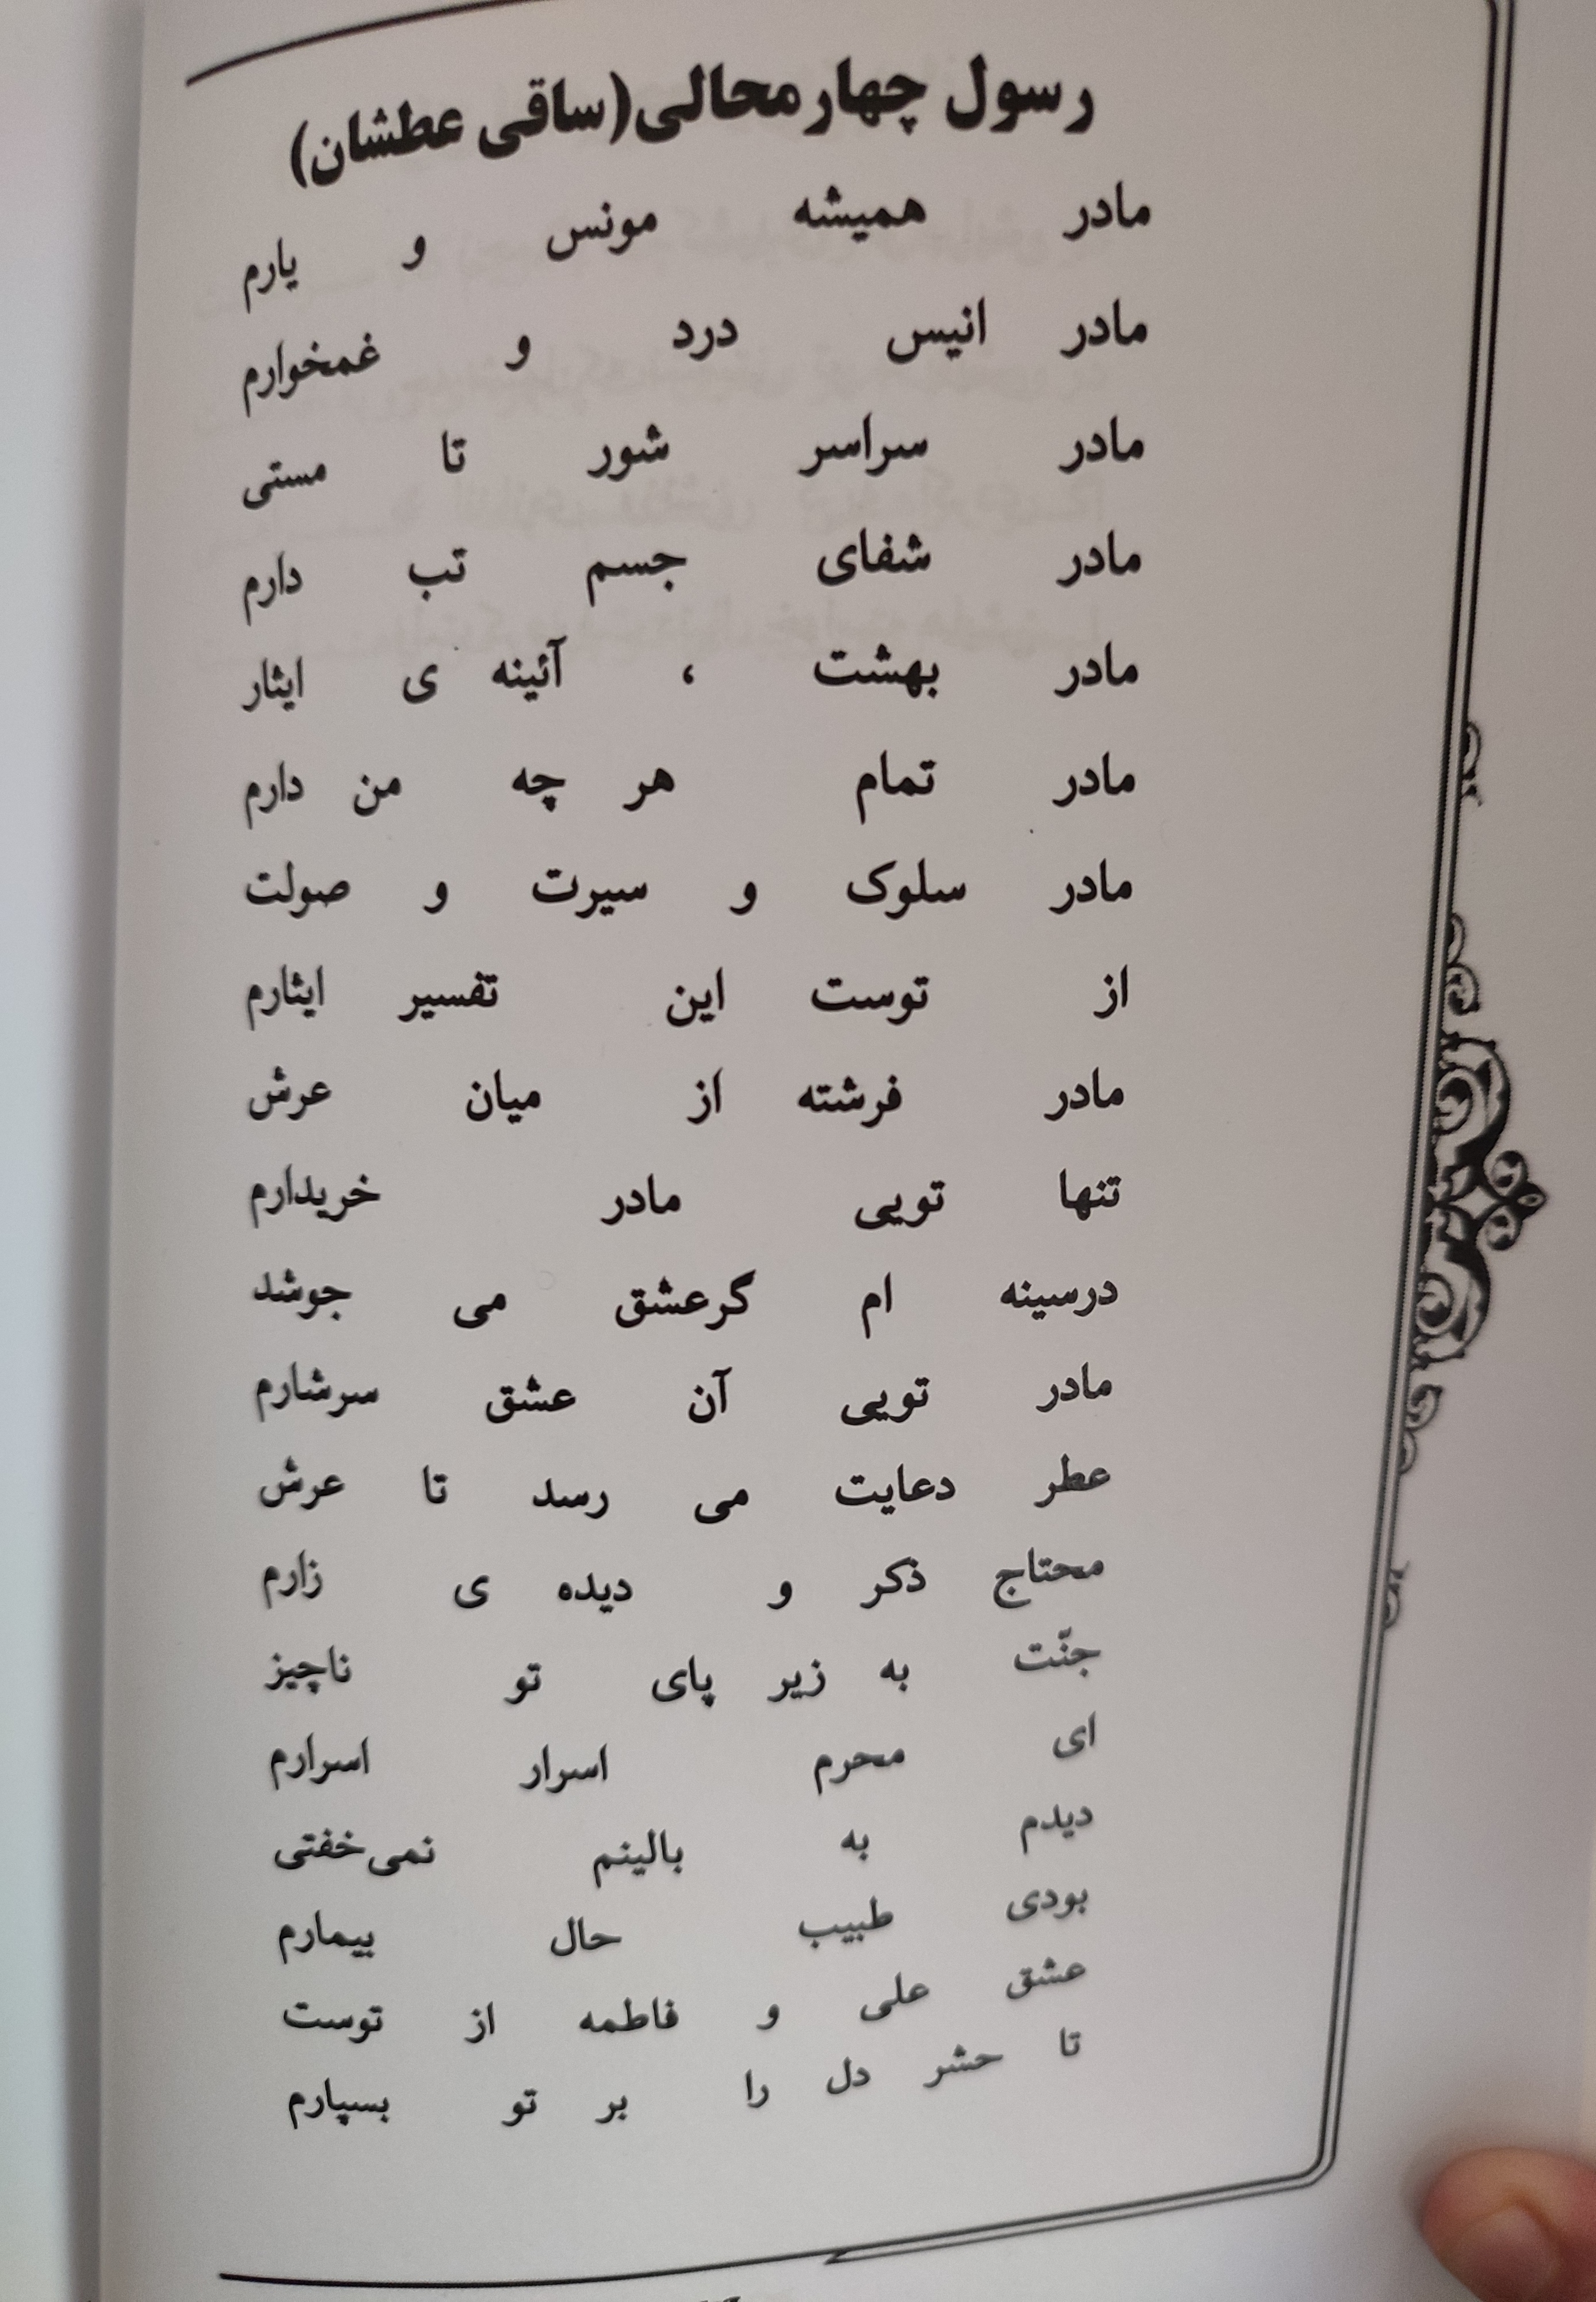 رسول چهارمحالی(ساقی عطشان)
مادر همیشه مونس و یارم
مادر انیس درد و غمخوارم
مادر سراسر شور تا مستی
مادر شفای جسم تب دارم
مادر بهشت ، آئینه ی ایثار
مادر تمام هر چه من دارم
مادر سلوک و سیرت و صولت
از توست این تفسیر ایثارم
مادر فرشته از میان عرش
تنها تویی مادر خریدارم
درسینه ام گرعشق می جوشد
مادر تویی آن عشق سرشارم
عطر دعایت می رسد تا عرش
محتاج ذکر و دیده ی زارم
جنّت به زیر پای تو ناچیز
ای محرم اسرار اسرارم
دیدم به بالینم نمی‌خفتی
بودی طبیب حال بیمارم
عشق علی و فاطمه از توست
تا حشر دل را بر تو بسپارم